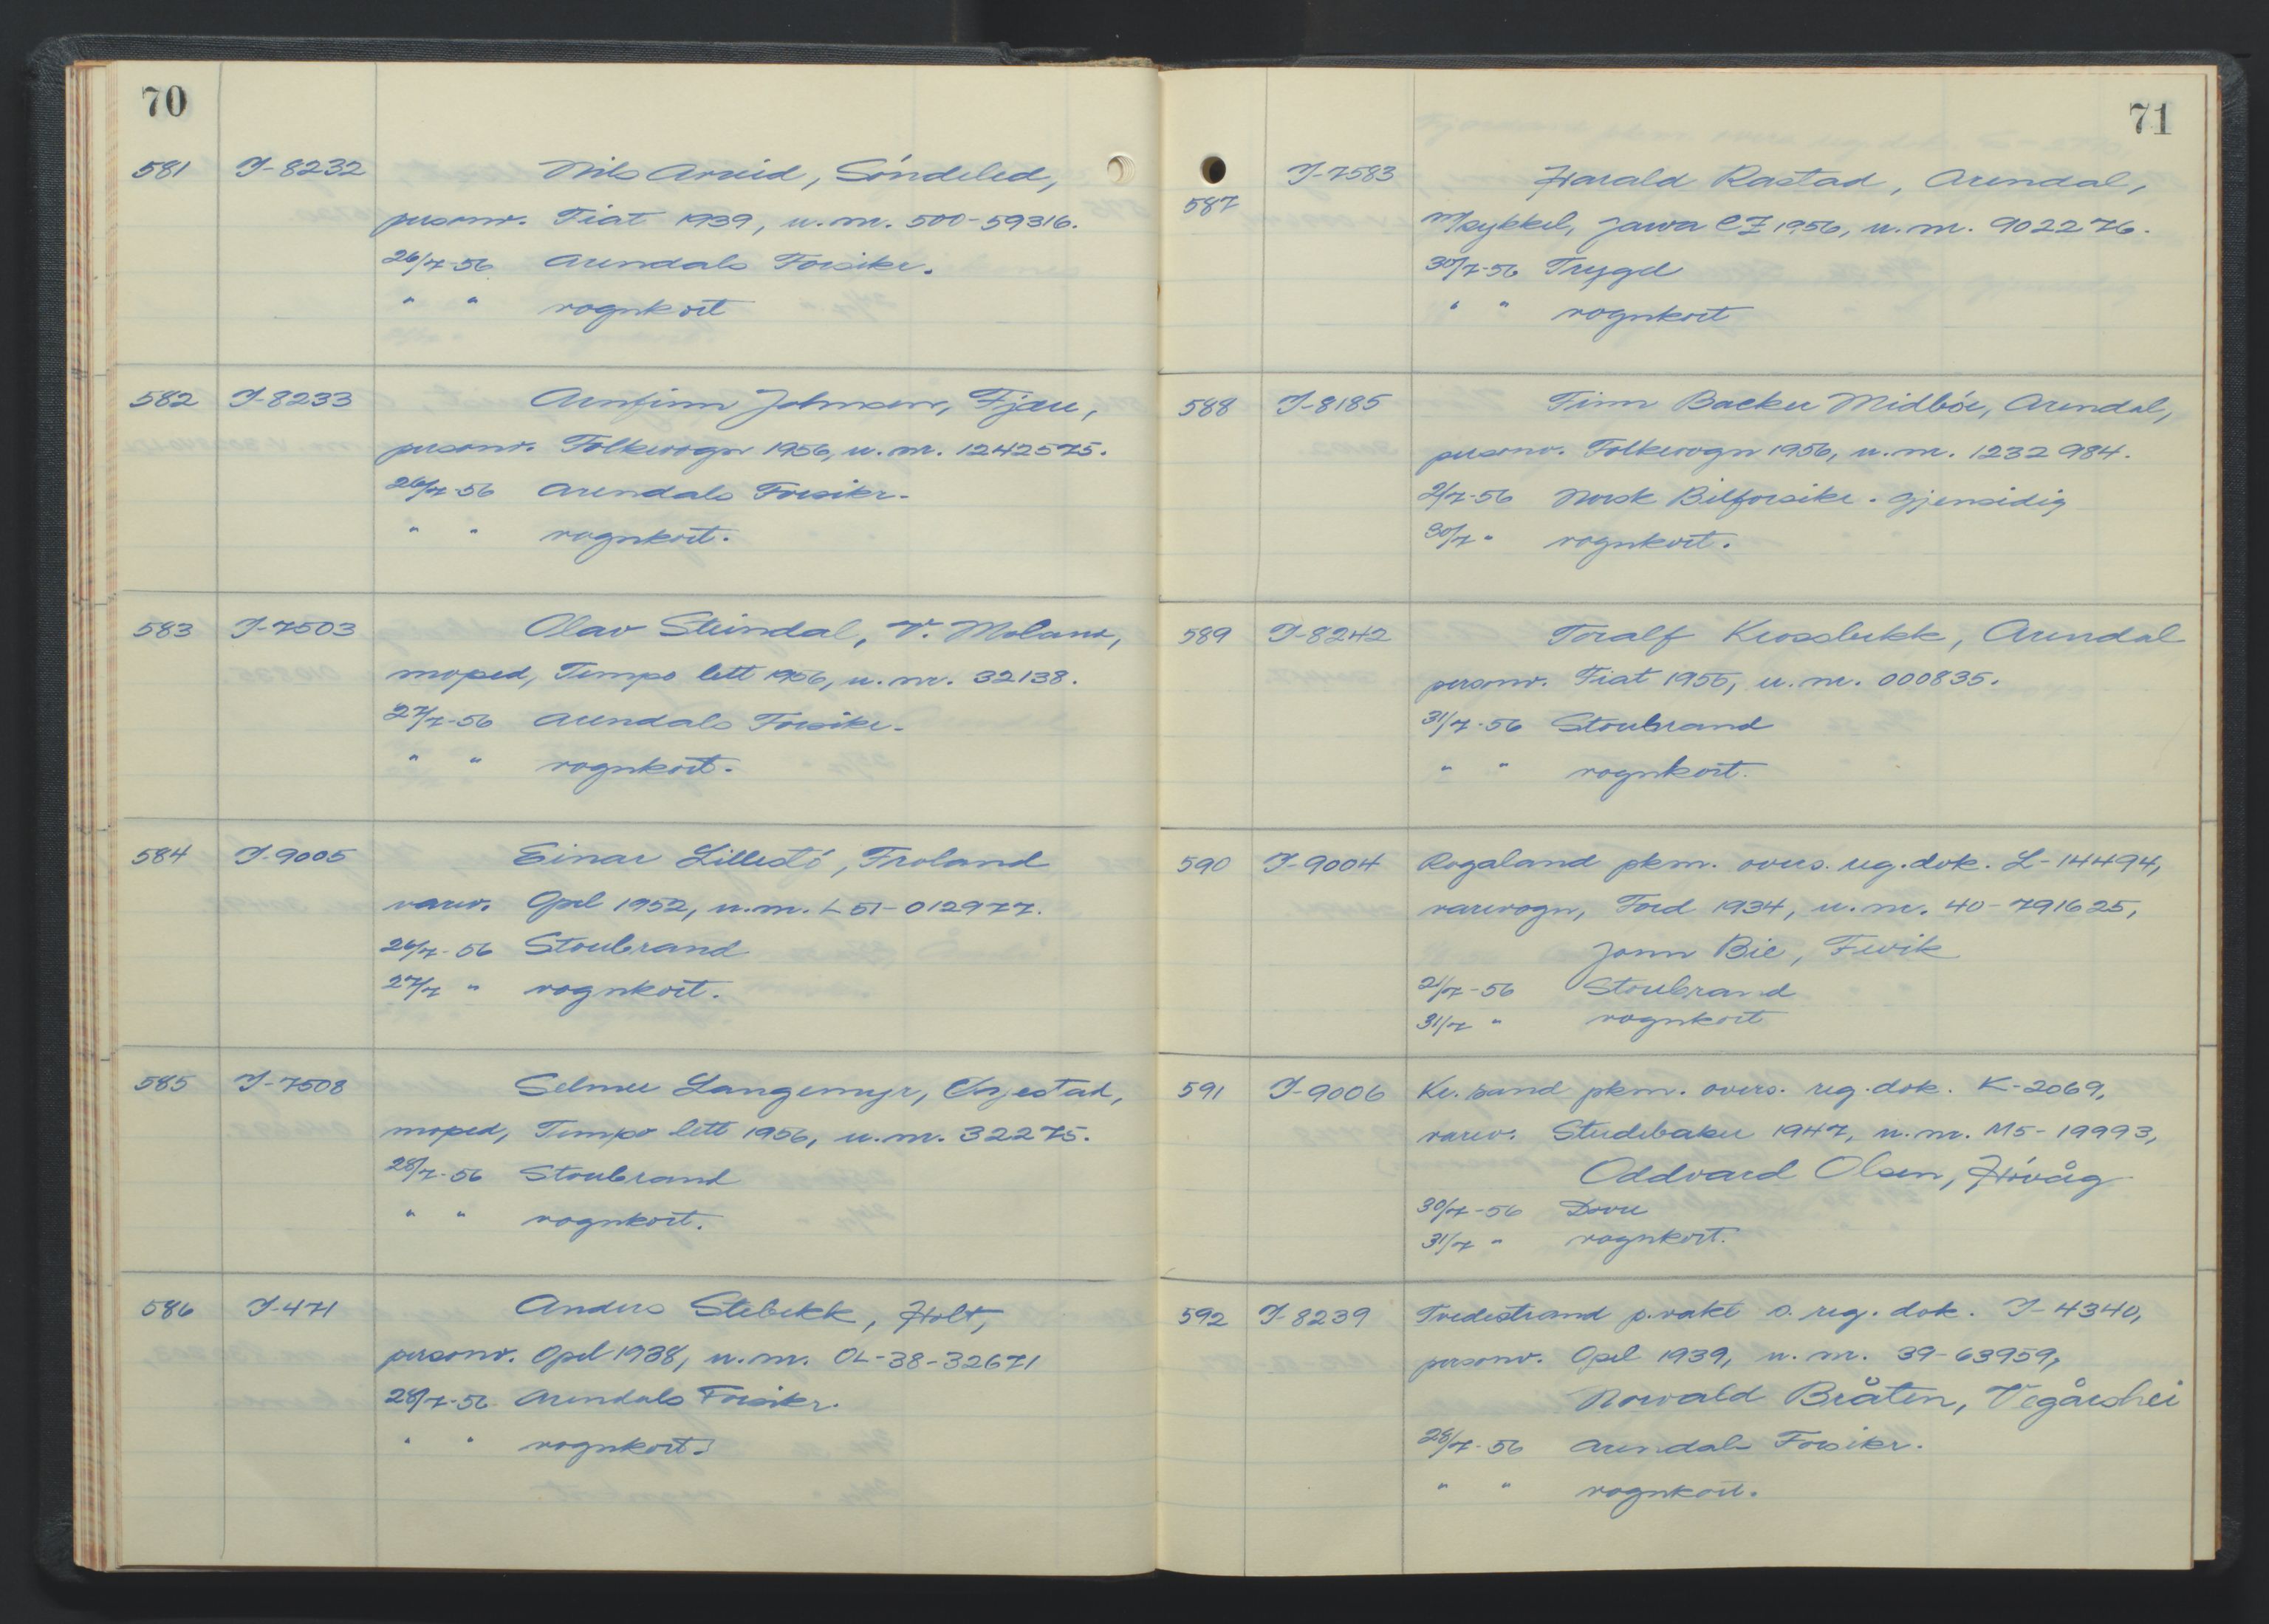 70
581 I-8232 Nils Arvid, Söndeled,
personv. Fiat 1939, u.m. 500-59316.
26/7-56 Arendals Forsikr.
" " vognkort
582 I-8233 Arnfinn Johnsen, Fjære,
personv. Folkevogn 1956, u.m. 1242575.
26/7-56 Arendals Forsikr.
" " vognkort.
583 I-7503 Olav Steindal, V. Moland,
moped, Tempo lett 1956, u.m. 32138.
27/7-56 Arendals Forsikr.
" " vognkort.
584 I-9005 Einar Lillestö, Froland
varev. Opel 1952, u.m. L 51-012977.
26/7-56 Storebrand
27/7 " vognkort.
585 I-7508 Selmer Langemyr, Öyestad,
moped, Tempo lett 1956, u.m. 32275.
28/7-56 Storebrand
" " vognkort.
586 I-471 Anders Stebekk, Holt,
personv. Opel 1938, u.m. OL-38-32671
28/7-56 Arendals Forsikr.
" " vognkort.
71
587 I-7583 Harald Rastad, Arendal,
m/sykkel, Jawa CZ 1956, u.m. 902276.
30/7-56 Trygd
" " vognkort
588 I-8185 Finn Backer Midböe, Arendal,
personv. Folkevogn 1956, u.m. 1232984.
2/7-56 Norsk Bilforsikr. Gjensidig
30/7 " vognkort.
589 I-8242 Toralf Krossbekk, Arendal
personv. Fiat 1955, u.m. 000835.
31/7-56 Storebrand
" " vognkort.
590 I-9004 Rogaland pkm. overs. reg.dok. L-14494,
varevogn, Ford 1934, u.m. 40-791625,
Jonn Bie, Fevik
2/7-56 Storebrand
31/7 " vognkort
591 I-9006 Kr.sand pkm. overs. reg.dok. K-2069,
varev. Studebaker 1947, u.m. M5-19993,
Oddvard Olsen, Hövåg
30/7-56 Dovre
31/7 " vognkort.
592 I-8239 Tvedestrand p.vakt o. reg.dok. I-4340,
personv. Opel 1939, u.m. 39-63959,
Norvald Bråten, Vegårshei
28/7-56 Arendals Forsikr.
" " vognkort.